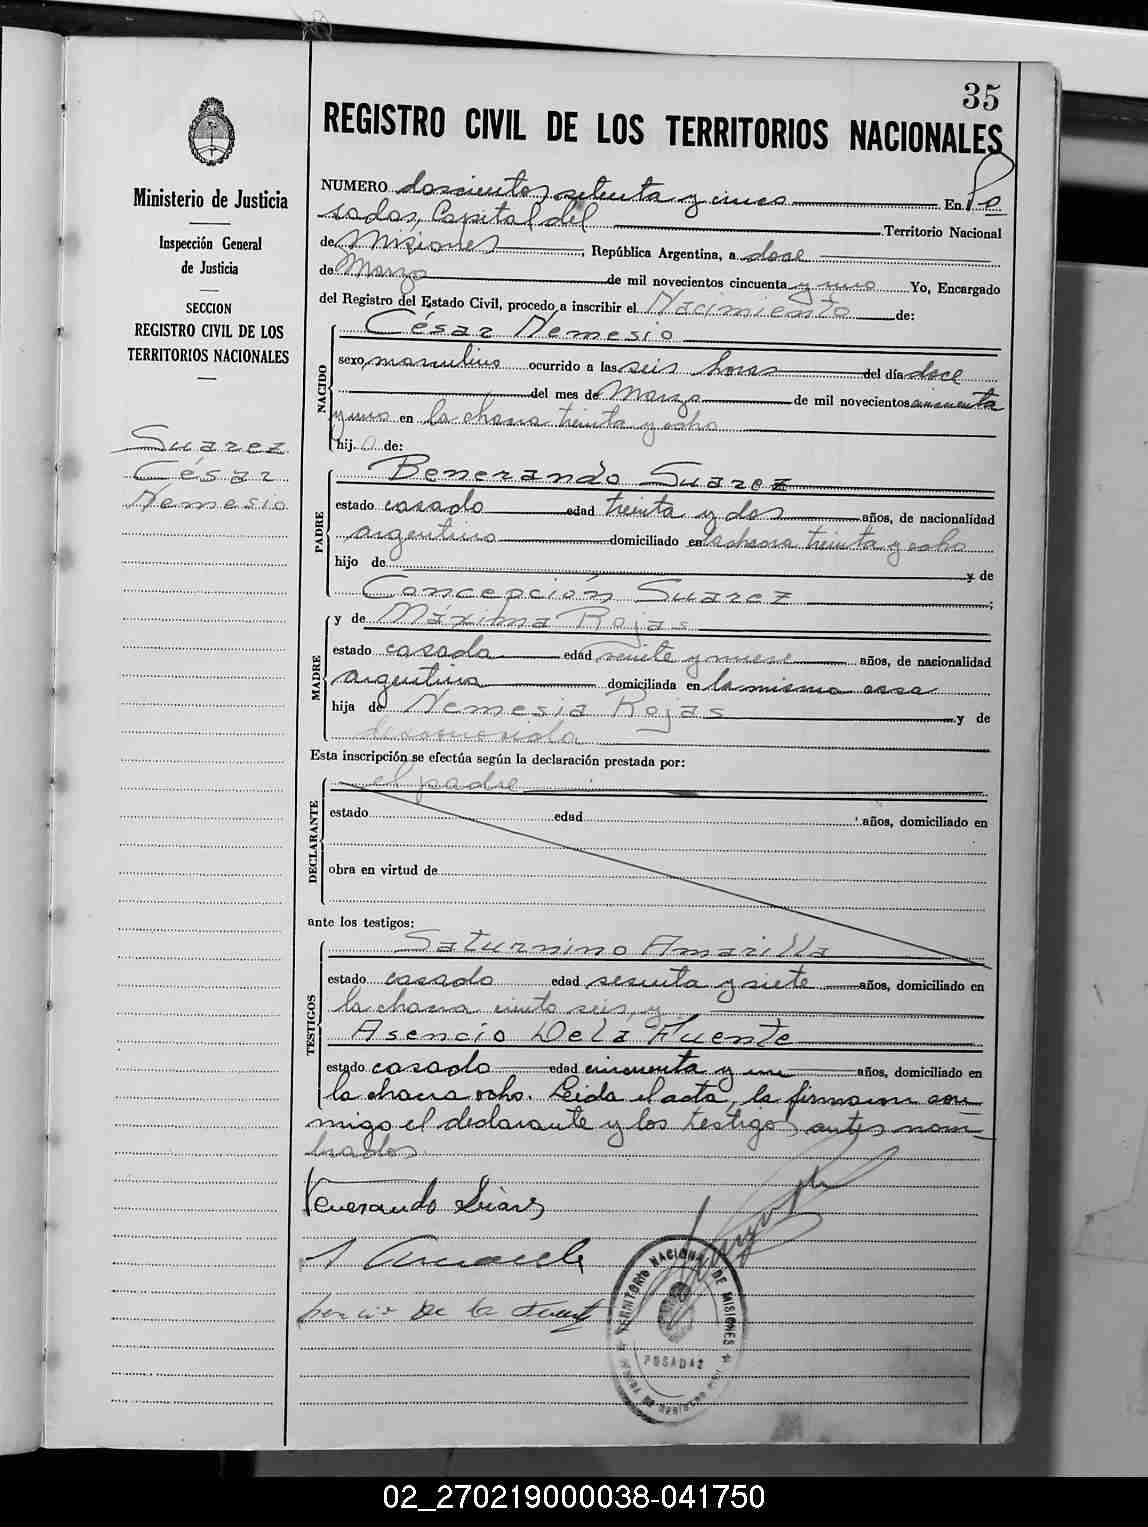 35
REGISTRO CIVIL DE LOS TERRITORIOS NACIONALES
Ministerio de Justicia
Inspección General
de Justicia
SECCION
REGISTRO CIVIL DE LOS
TERRITORIOS NACIONALES
Suarez
César
Nemesio
NUMERO doscientos setenta y cinco En Po
sadas, Capital del Territorio Nacional
de Misiones, República Argentina, a doce
de Marzo de mil novecientos cincuenta y uno Yo, Encargado
del Registro del Estado Civil, procedo a inscribir el Nacimiento de:
NACIDO
César Nemesio
sexo, masculino ocurrido a las seis horas del día doce
del mes de Marzo de mil novecientos cincuenta
y uno en la chacra treinta y ocho
hijo de:
PADRE
Benerando Suarez
estado casado edad treinta y dos años, de nacionalidad
argentino domiciliado en la chacra treinta y ocho
hijo de y de
Concepción Suarez ;
MADRE
y de Máxima Rojas
estado casada edad veinte y nueve años, de nacionalidad
argentina domiciliada en la misma casa
hija de Nemesia Rojas y de
Esta inscripción se efectúa según la declaración prestada por:
DECLARANTE
el padre
estado edad años, domiciliado en
obra en virtud de
ante los testigos:
TESTIGOS
Saturnino Amarilla
estado casado edad sesenta y siete años, domiciliado en
la chacra ciento seis, y
Asencio De la Fuente
estado casado edad cincuenta y un años, domiciliado en
la chacra ocho. Leida el acta, la firmaron con-
migo el declarante y los testigos antes nom-
brados.
Venerando Suarez
de la Fuente
TERRITORIO NACIONAL DE MISIONES
POSADAS
02_270219000038-041750